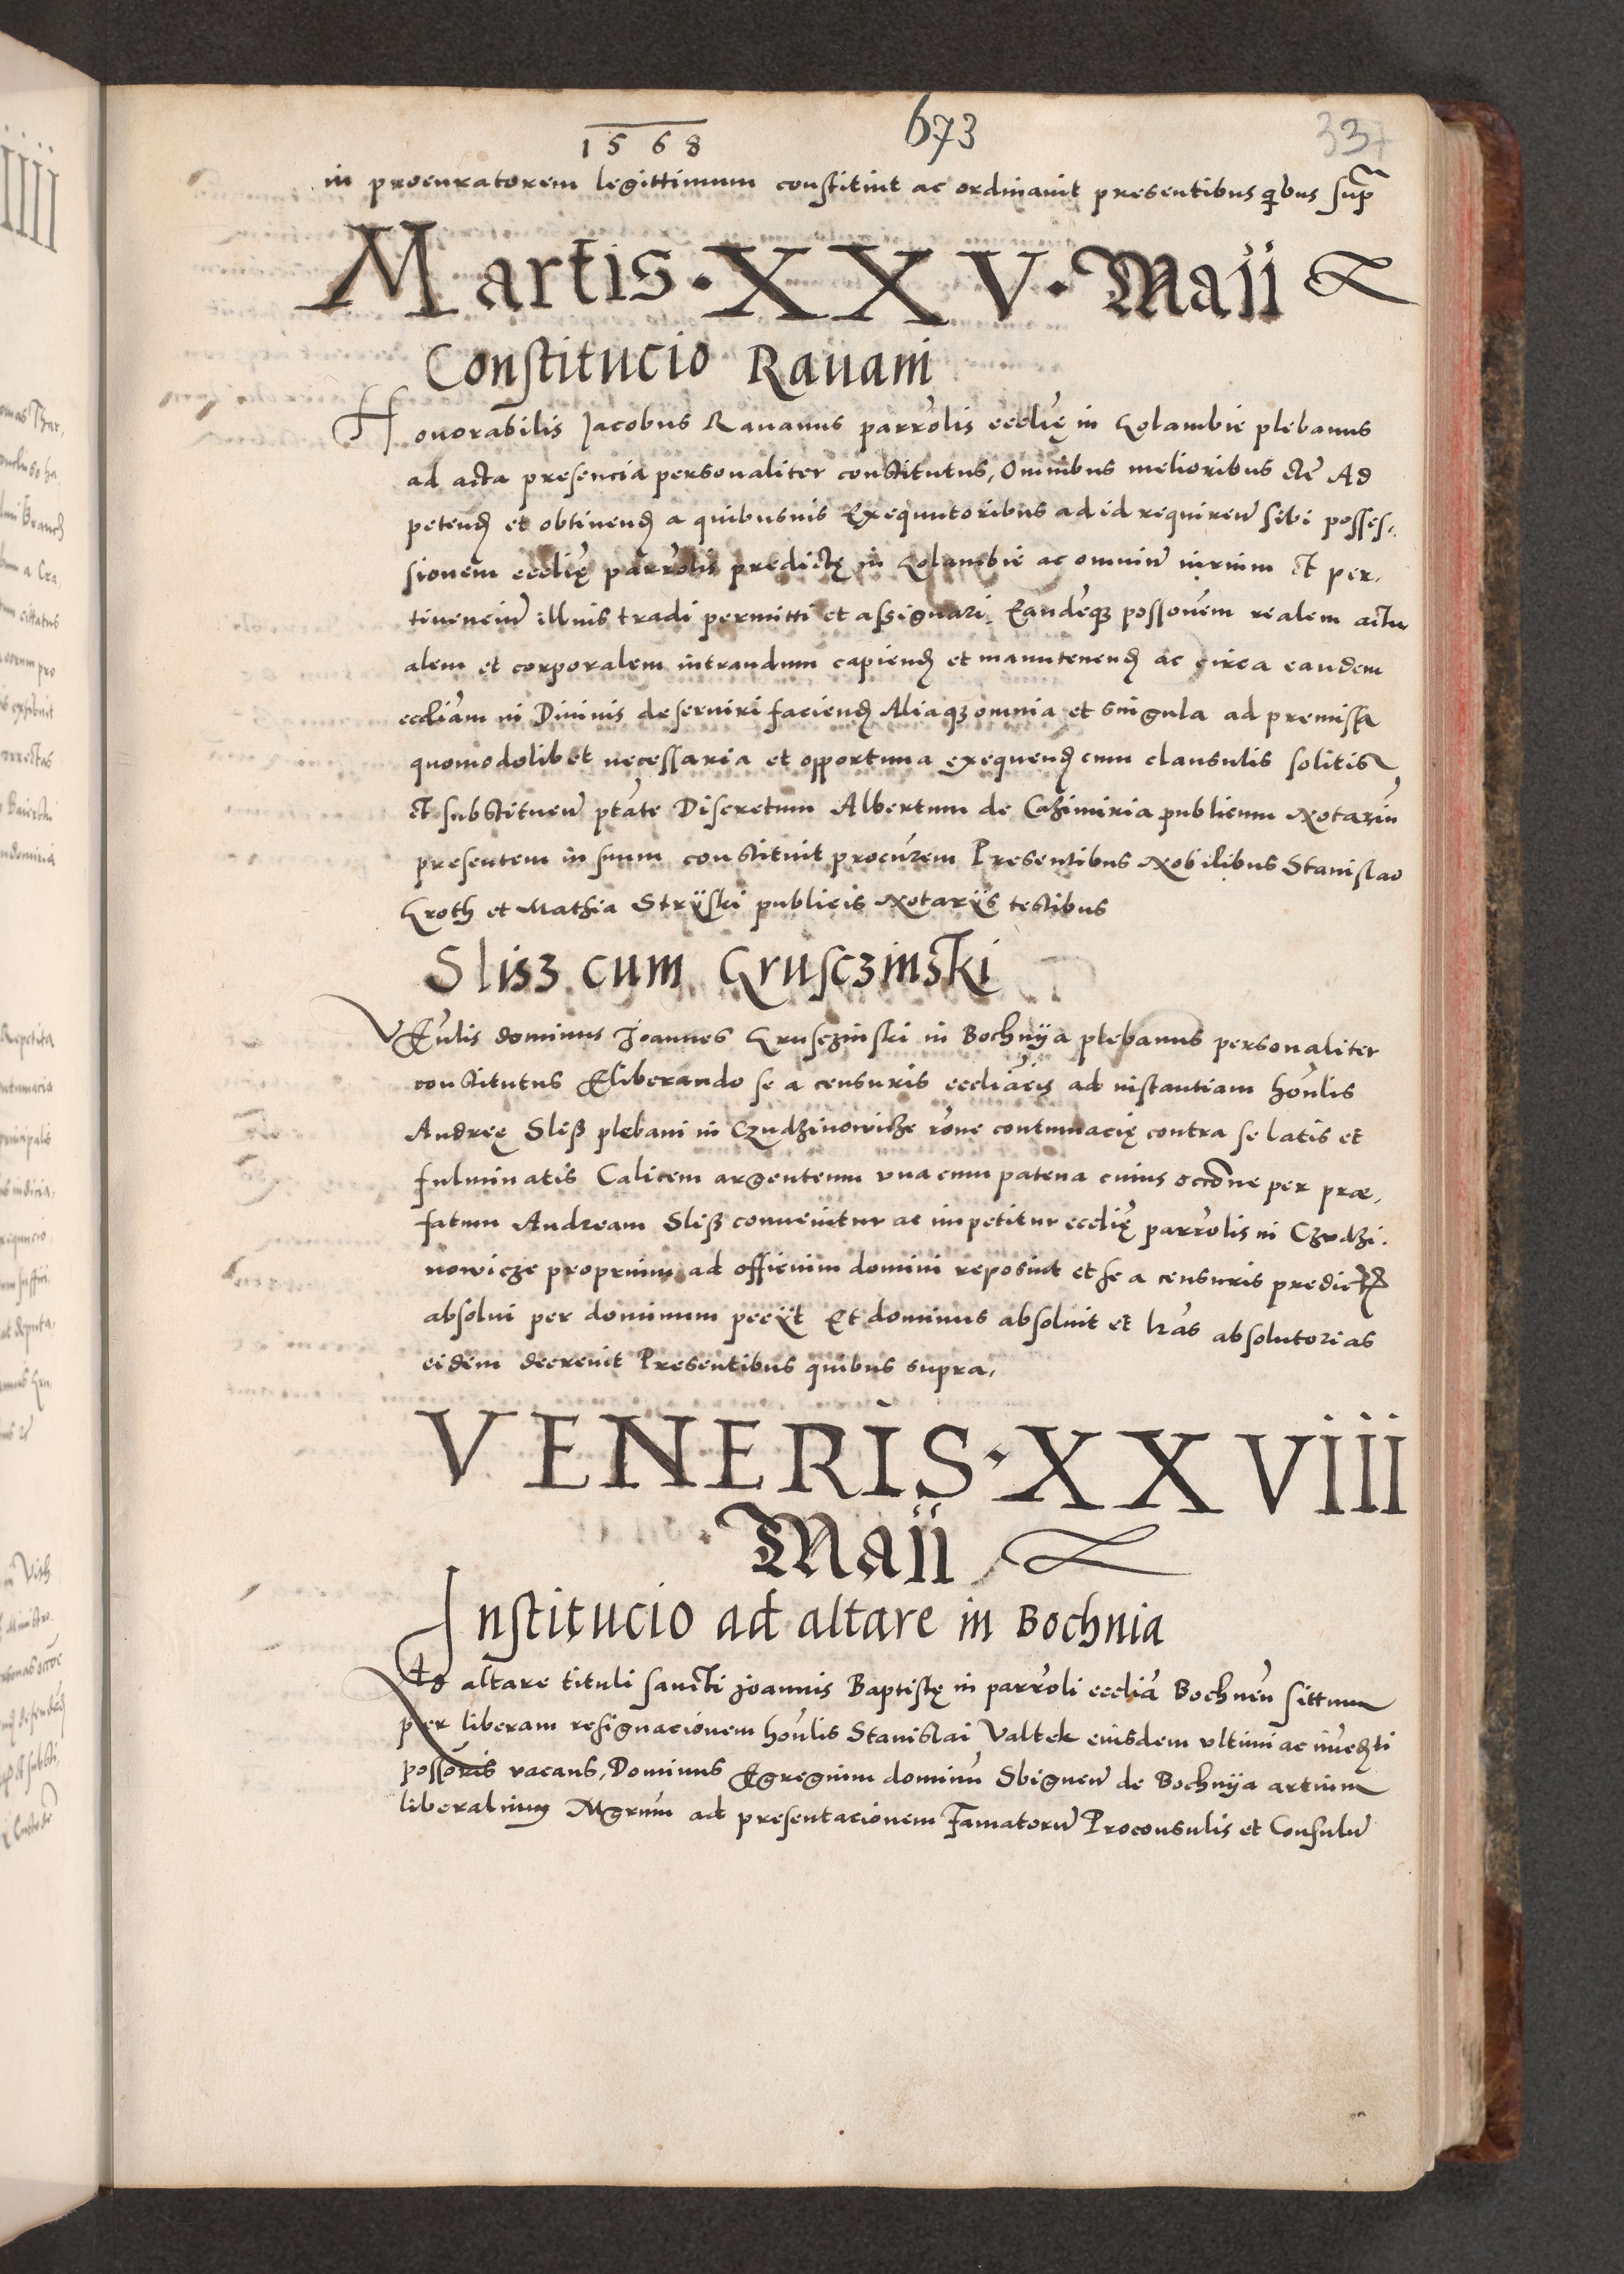 1568
673
337
in procuratorem legittimum constituit ac ordinavit presentibus q̃bus sup̃
Martis · XXV · Maii
Constitucio Ravani
Honorabilis Jacobus Ravanus parrõlis ecclię in Golambie plebanus
ad acta presencia personaliter constitutus, Omnibus melioribus etc̃ Ad
petend et obtinend a quibusuis Exequutoribus ad id requireñ sibi posses-
sionem ecclię parrõlis predictę in Golambie ac omniũ iurium et per-
tinenciũ illius tradi permitti et assignari. Eandẽque possõnem realem actu
alem et corporalem intrandum capiend et manutenend ac circa eandem
eccliam in Diuinis deseruiri faciend Aliaque omnia et singula ad premissa
quomodolibet necessaria et opportuna exequend cum clausulis solitis
et substitueñ ptãte Discretum Albertum de Cazimiria publicum Notariũ
presentem in suum constituit procũrem Presentibus Nobilibus Stanislao
Groth et Mathia Strÿski publicis Notarÿs testibus
Slisz cum Grusczinski
VEñlis dominus Joannes Grusczinski in Bochnÿa plebanus personaliter
constitutus Eliberando se a censuris eccliãcis ad instantiam hoñlis
Andreę Sliß plebani in Czudzinowicze rõne contumacię contra se latis et
fulminatis Calicem argenteum vna cum patena cuius occõne per præ-
fatum Andream Sliß conuenitur ac impetitur ecclię parrõlis in Czudzi-
nowicze proprium ad officium domini reposuit et se a censuris predict
absolui per dominum pecÿt Et dominus absoluit et lr̃as absolutorias
eidem decreuit Presentibus quibus supra.
VENERIS · XXVIII
Maii
Institucio ad altare in Bochnia
Ad altare tituli sancti Joannis Baptistę in parrõli ecclia Bochneñ sittum
per liberam resignacionem hoñlis Stanislai Valtek eiusdem vltimi ac imẽdti
possõris vacans, Dominus Egregium dominũ Sbigneũ de Bochnÿa artium
liberalium Mgrũm ad presentacionem Famatorũ Proconsulis et Consulũ